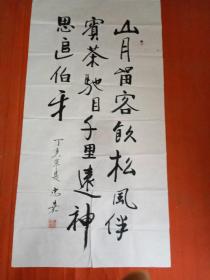 山月留客飲松風伴
賓茶馳目千里遠神
思追伯牙
丁亥